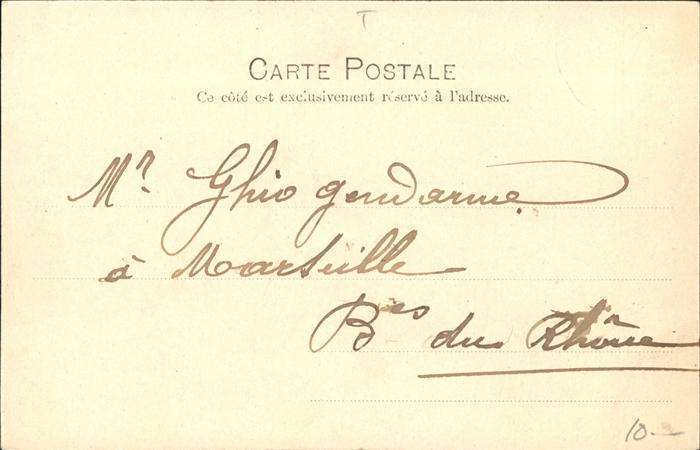 T
CARTE POSTALE
Ce côté est exclusivement réservé à l'adresse.
Mr. Ghio gendarme
à Marseille
Bes du Rhône
10-